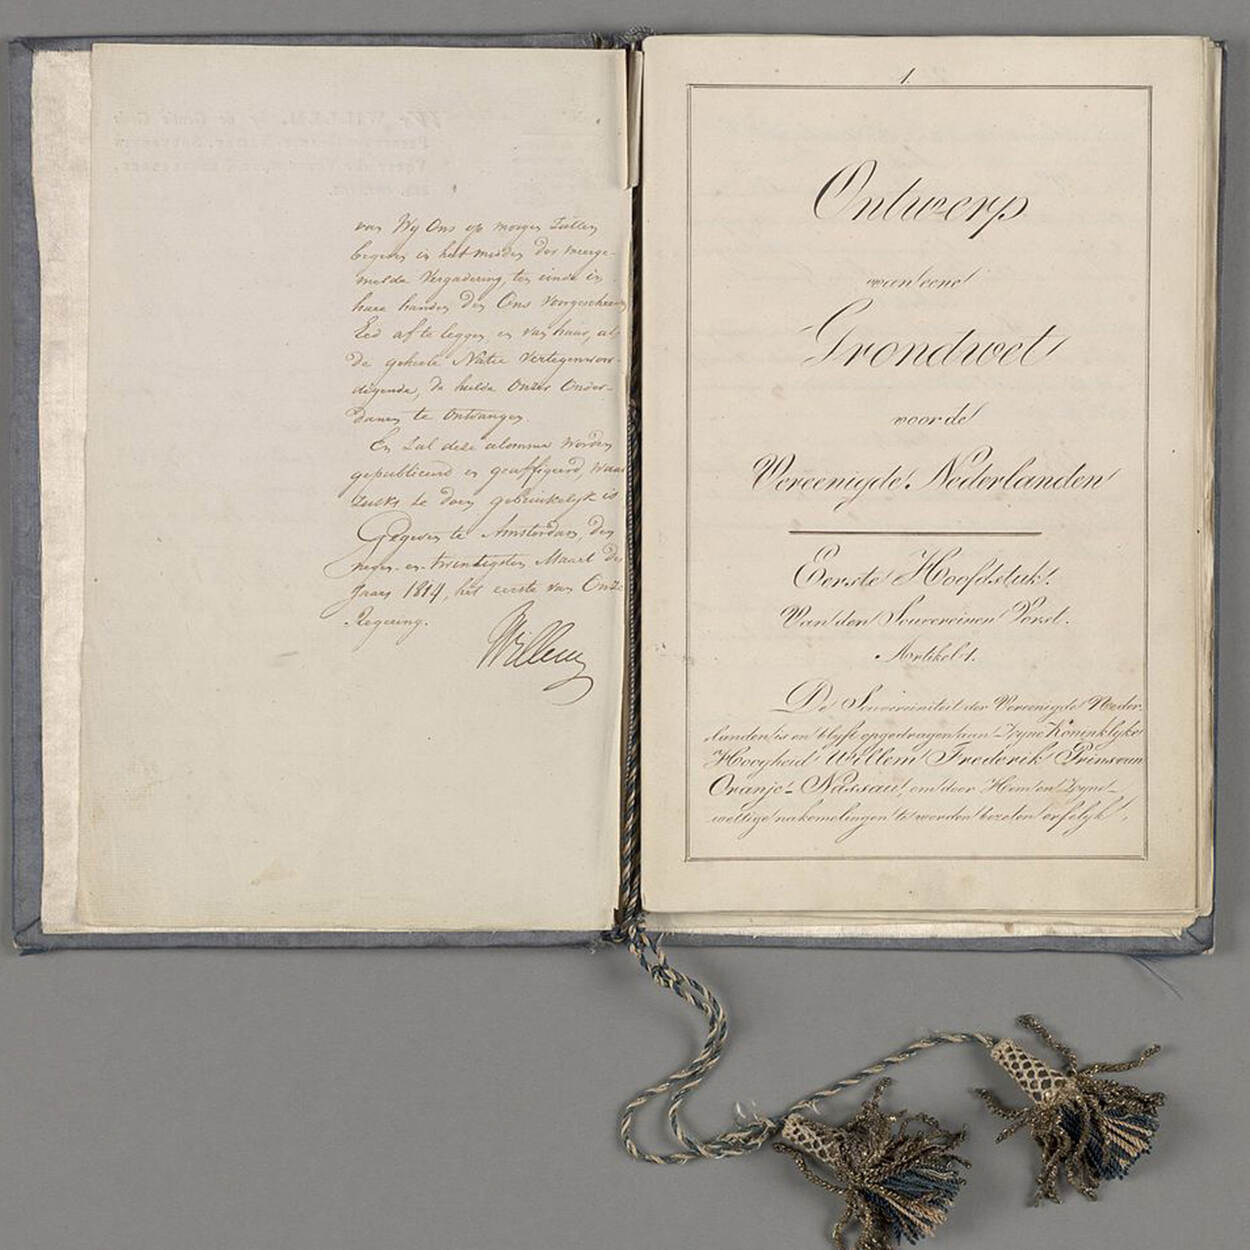 van Wy Ons op morgen zullen
begeven in het midden der meerge-
melde Vergadering, ten einde in
hare handen den Ons voorgeschreven
Eed af te leggen, en van haar, als
de geheele Natie vertegenwoor-
digende, de hulde Onzer Onder-
danen te ontvangen.
En zal deze alomme worden
gepubliceerd en geaffigeerd, waar
zulks te doen gebruikelyk is
Gegeven te Amsterdam, den
negen-en-twintigsten Maart des
Jaars 1814, het eerste van Onze
Regering.
Willem
1.
Ontwerp
van eene
Grondwet
voor de
Vereenigde Nederlanden
Eerste Hoofdstuk.
Van den Souvereinen Vorst.
Artikel 1.
De Souvereiniteit der Vereenigde Neder-
landen is en blyft opgedragen aan Zyne Koninklyke
Hoogheid Willem Frederik Prins van
Oranje-Nassau, om door Hem en Zyne
wettige nakomelingen te worden bezeten erfelyk,